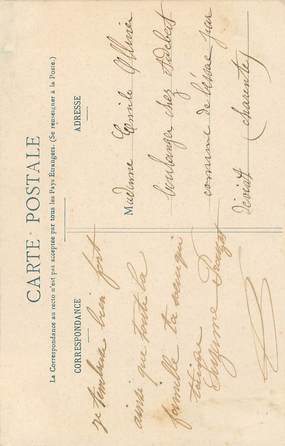 CARTE POSTALE
La Correspondance au recto n'est pas acceptée par tous les Pays Étrangers. (Se renseigner à la Poste.)
CORRESPONDANCE
ADRESSE
je t'embrasse bien fort
ainsi que toute la
famille ta cousine qui
t'aime
Suzanne
Madame Emile Ollivier
boulanger chez
commune de par
Charente